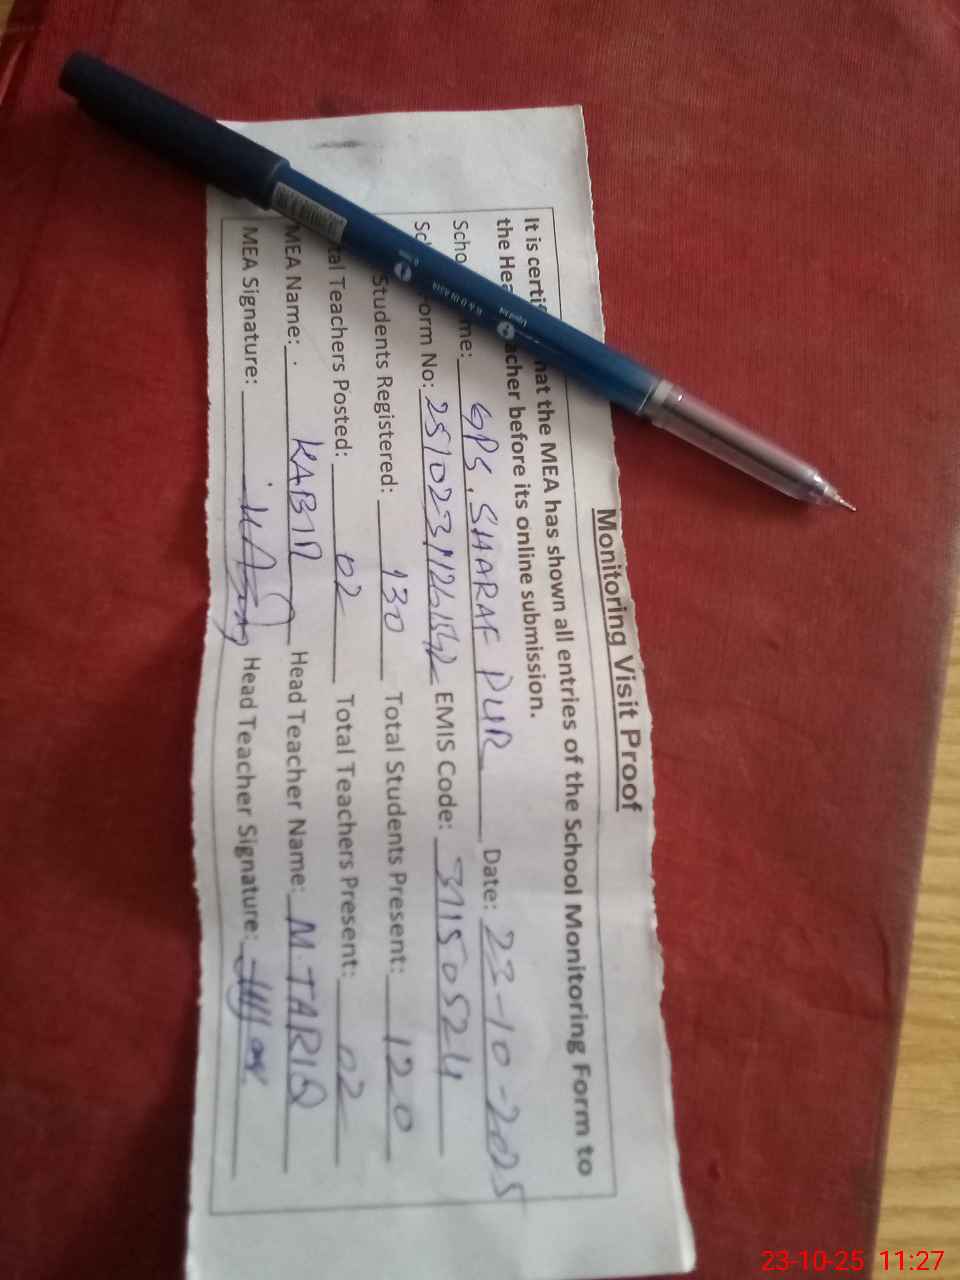 Monitoring Visit Proof
It is certi hat the MEA has shown all entries of the School Monitoring Form to
the Hea acher before its online submission.
Scho me: GPS. SHARAF PUR Date: 23-10-2025
Sc orm No: EMIS Code: 31150524
Students Registered: 130 Total Students Present: 120
tal Teachers Posted: 02 Total Teachers Present: 02
MEA Name: KABIR Head Teacher Name: M. TARIQ
MEA Signature: Head Teacher Signature:
23-10-25 11:27